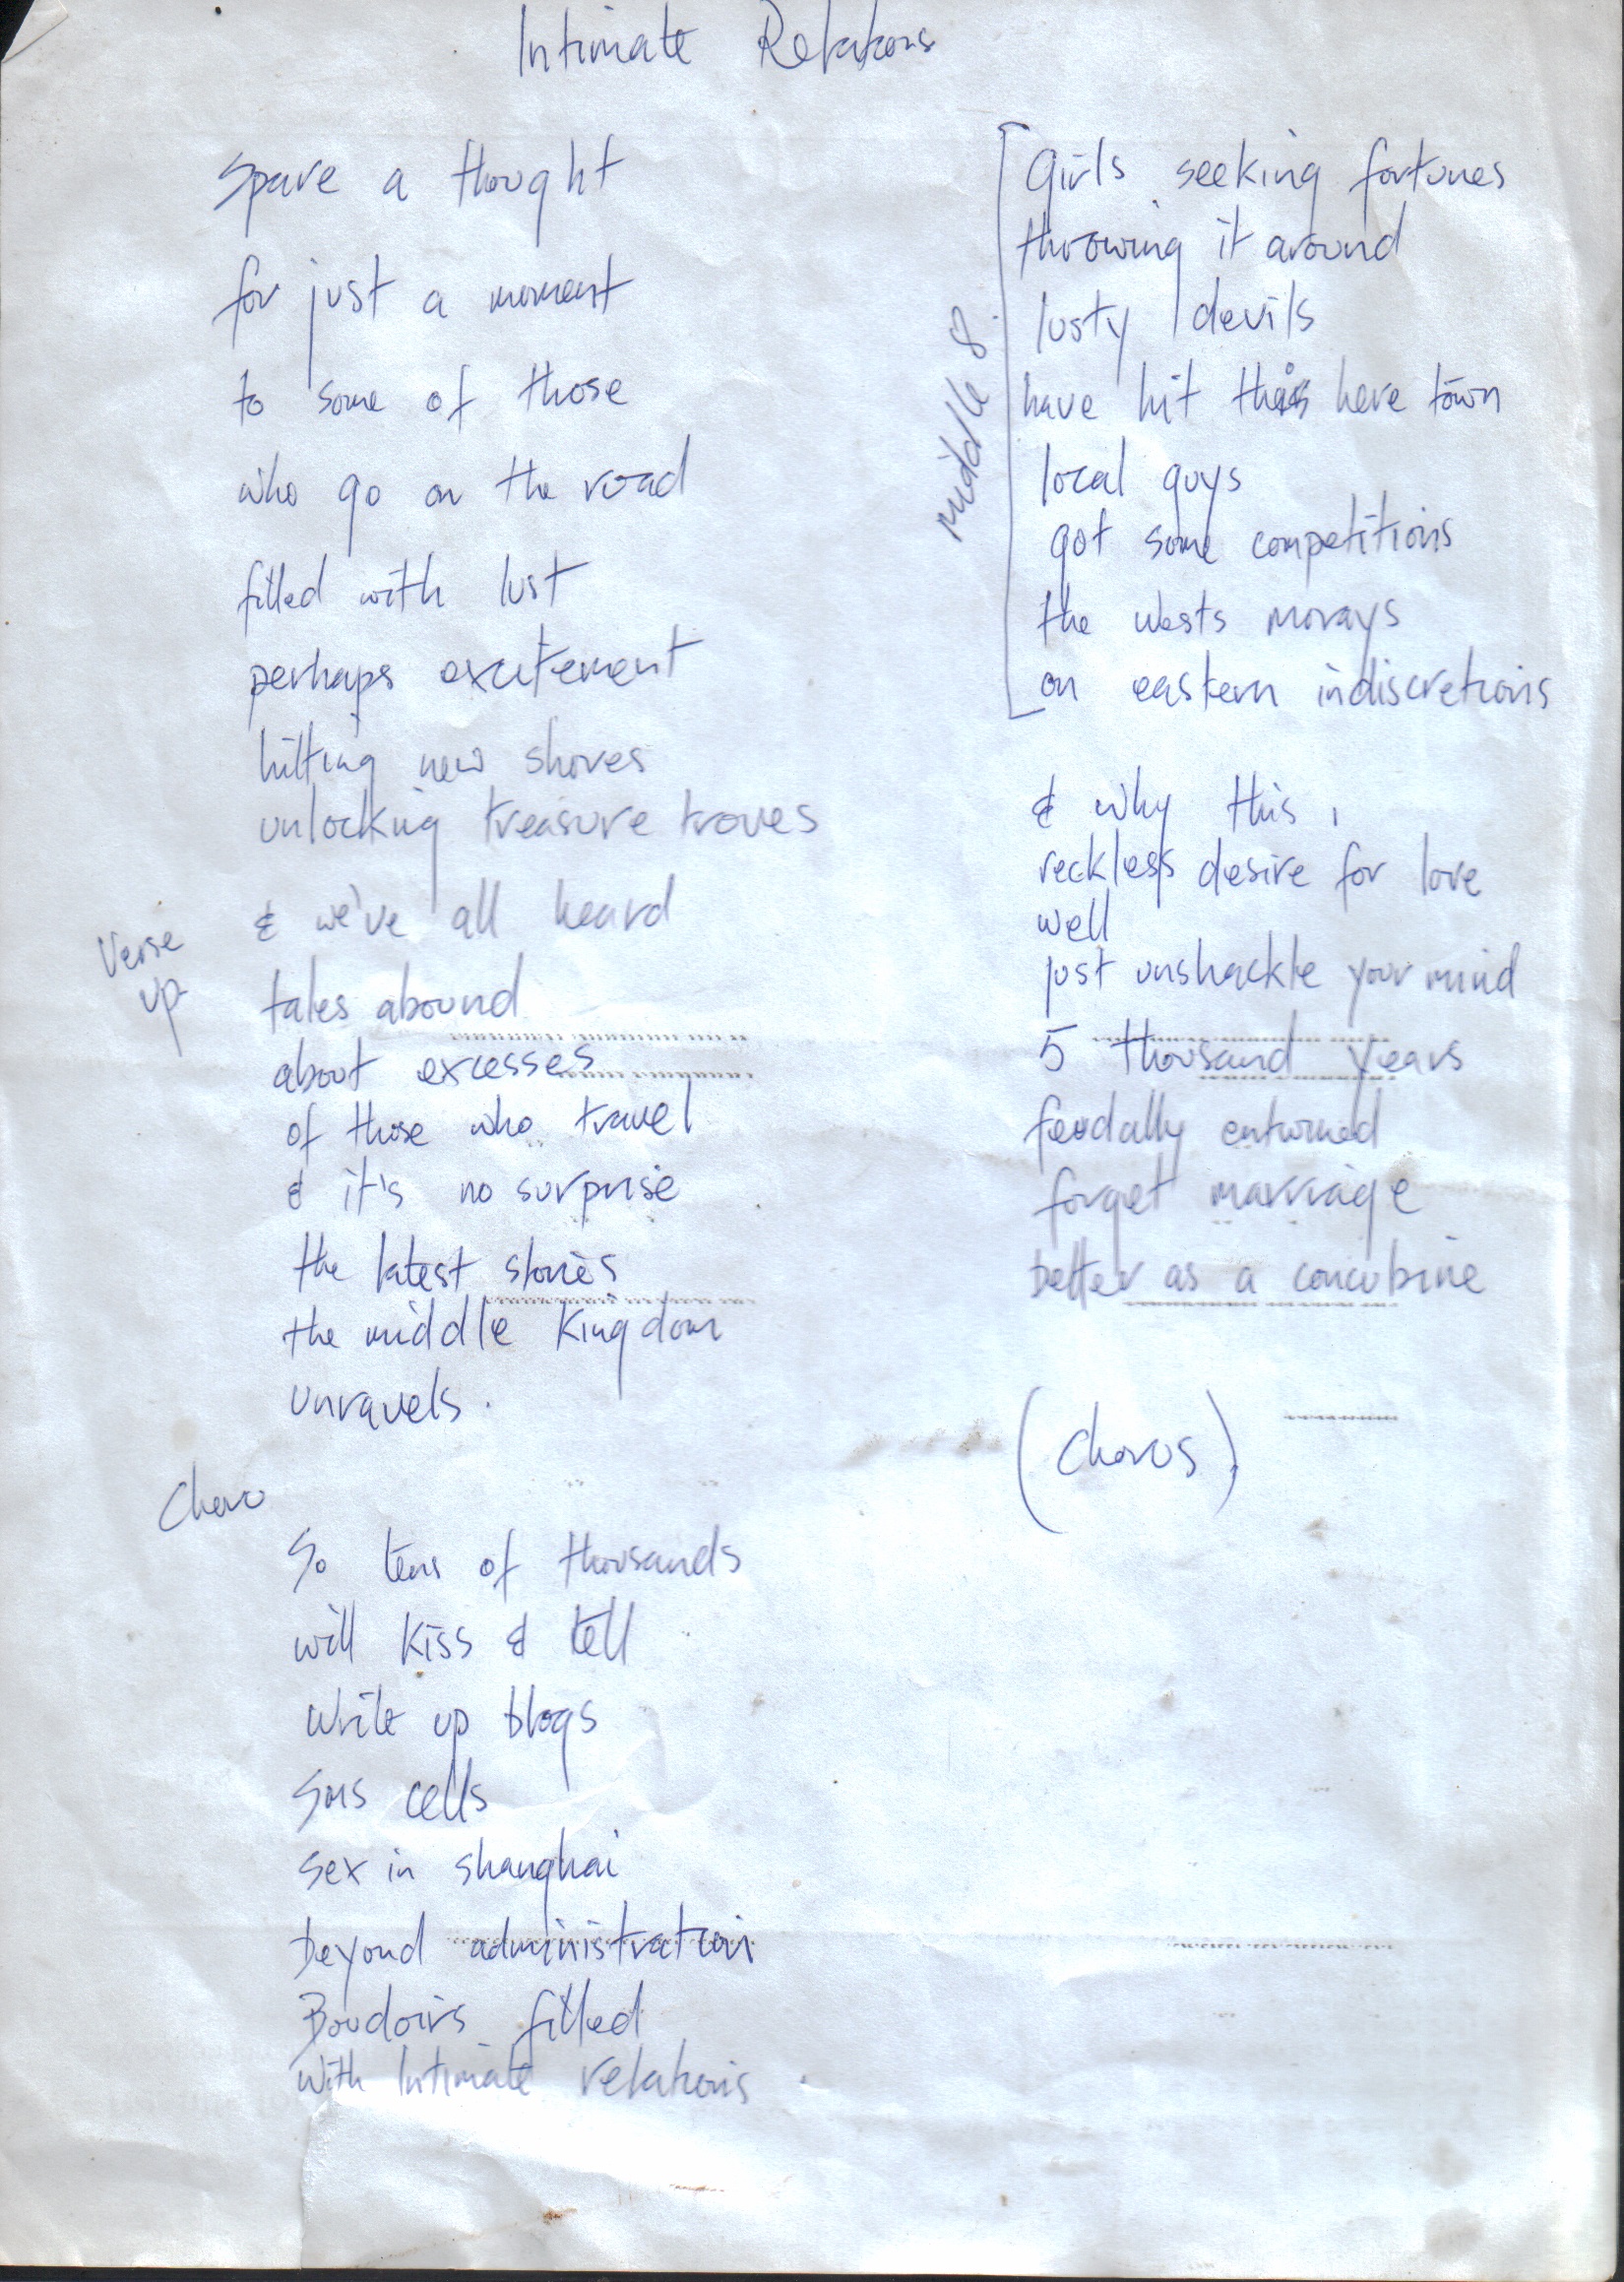 Intimate Relations
Spare a thought
for just a moment
to some of those
who go on the road
filled with lust
perhaps excitement
hitting new shores
unlocking treasure troves
Verse
up
& we've all heard
tales abound
about excesses
of those who travel
& it's no surprise
the latest stories
the middle Kingdom
unravels.
Choru
So tens of thousands
will kiss & tell
write up blogs
sms cells
sex in shanghai
beyond administration
Boudoirs filled
with Intimate relations
Middle 8.
Girls seeking fortunes
throwing it around
lusty devils
have hit this here town
local guys
got some competitions
the wests morays
on eastern indiscretions
& why this,
reckless desire for love
well
just unshackle your mind
5 thousand years
feudally entwined
forget marriage
better as a concubine
(Chorus)